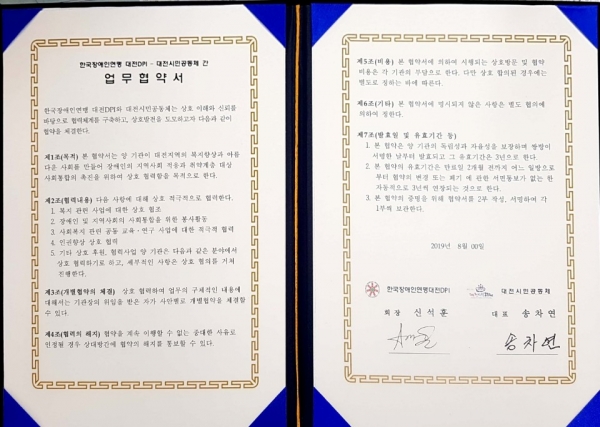 한국장애인연맹 대전DPI - 대전시민공동체 간
업무협약서
한국장애인연맹 대전DPI와 대전시민공동체는 상호 이해와 신뢰를
바탕으로 협력체계를 구축하고, 상호발전을 도모하고자 다음과 같이
협약을 체결한다.
제1조(목적) 본 협약서는 양 기관이 대전지역의 복지향상과 아름
다운 사회를 만들어 장애인의 지역사회 적응과 취약계층 대상
사회통합의 촉진을 위하여 상호 협력함을 목적으로 한다.
제2조(협력내용) 다음 사항에 대해 상호 적극적으로 협력한다.
1. 복지 관련 사업에 대한 상호 협조
2. 장애인 및 지역사회의 사회통합을 위한 봉사활동
3. 사회복지 관련 공동 교육·연구 사업에 대한 적극적 협력
4. 인권향상 상호 협력
5. 기타 상호 후원, 협력사업 양 기관은 다음과 같은 분야에서
상호 협력하기로 하고, 세부적인 사항은 상호 협의를 거쳐
진행한다.
제3조(개별협약의 체결) 상호 협력하여 업무의 구체적인 내용에
대해서는 기관장의 위임을 받은 자가 사안별로 개별협약을 체결할
수 있다.
제4조(협력의 해지) 협약을 계속 이행할 수 없는 중대한 사유로
인정될 경우 상대방간에 협약의 해지를 통보할 수 있다.
제5조(비용) 본 협약서에 의하여 시행되는 상호방문 및 협약
비용은 각 기관의 부담으로 한다. 다만 상호 합의된 경우에는
별도로 정하는 바에 따른다.
제6조(기타) 본 협약서에 명시되지 않은 사항은 별도 협의에
의하여 정한다.
제7조(발효일 및 유효기간 등)
1. 본 협약은 양 기관의 독립성과 자율성을 보장하며 쌍방이
서명한 날부터 발효되고 그 유효기간은 3년으로 한다.
2. 본 협약의 유효기간은 만료일 2개월 전까지 어느 일방으로
부터 협약의 변경 또는 폐기 에 관한 서면통보가 없는 한
자동적으로 3년씩 연장되는 것으로 한다.
3. 본 협약의 증빙을 위해 협약서를 2부 작성, 서명하여 각
1부씩 보관한다.
2019년 8월 00일
한국장애인연맹대전DPI 대전시민공동체
회장 신석훈 대표 송차연
송차연